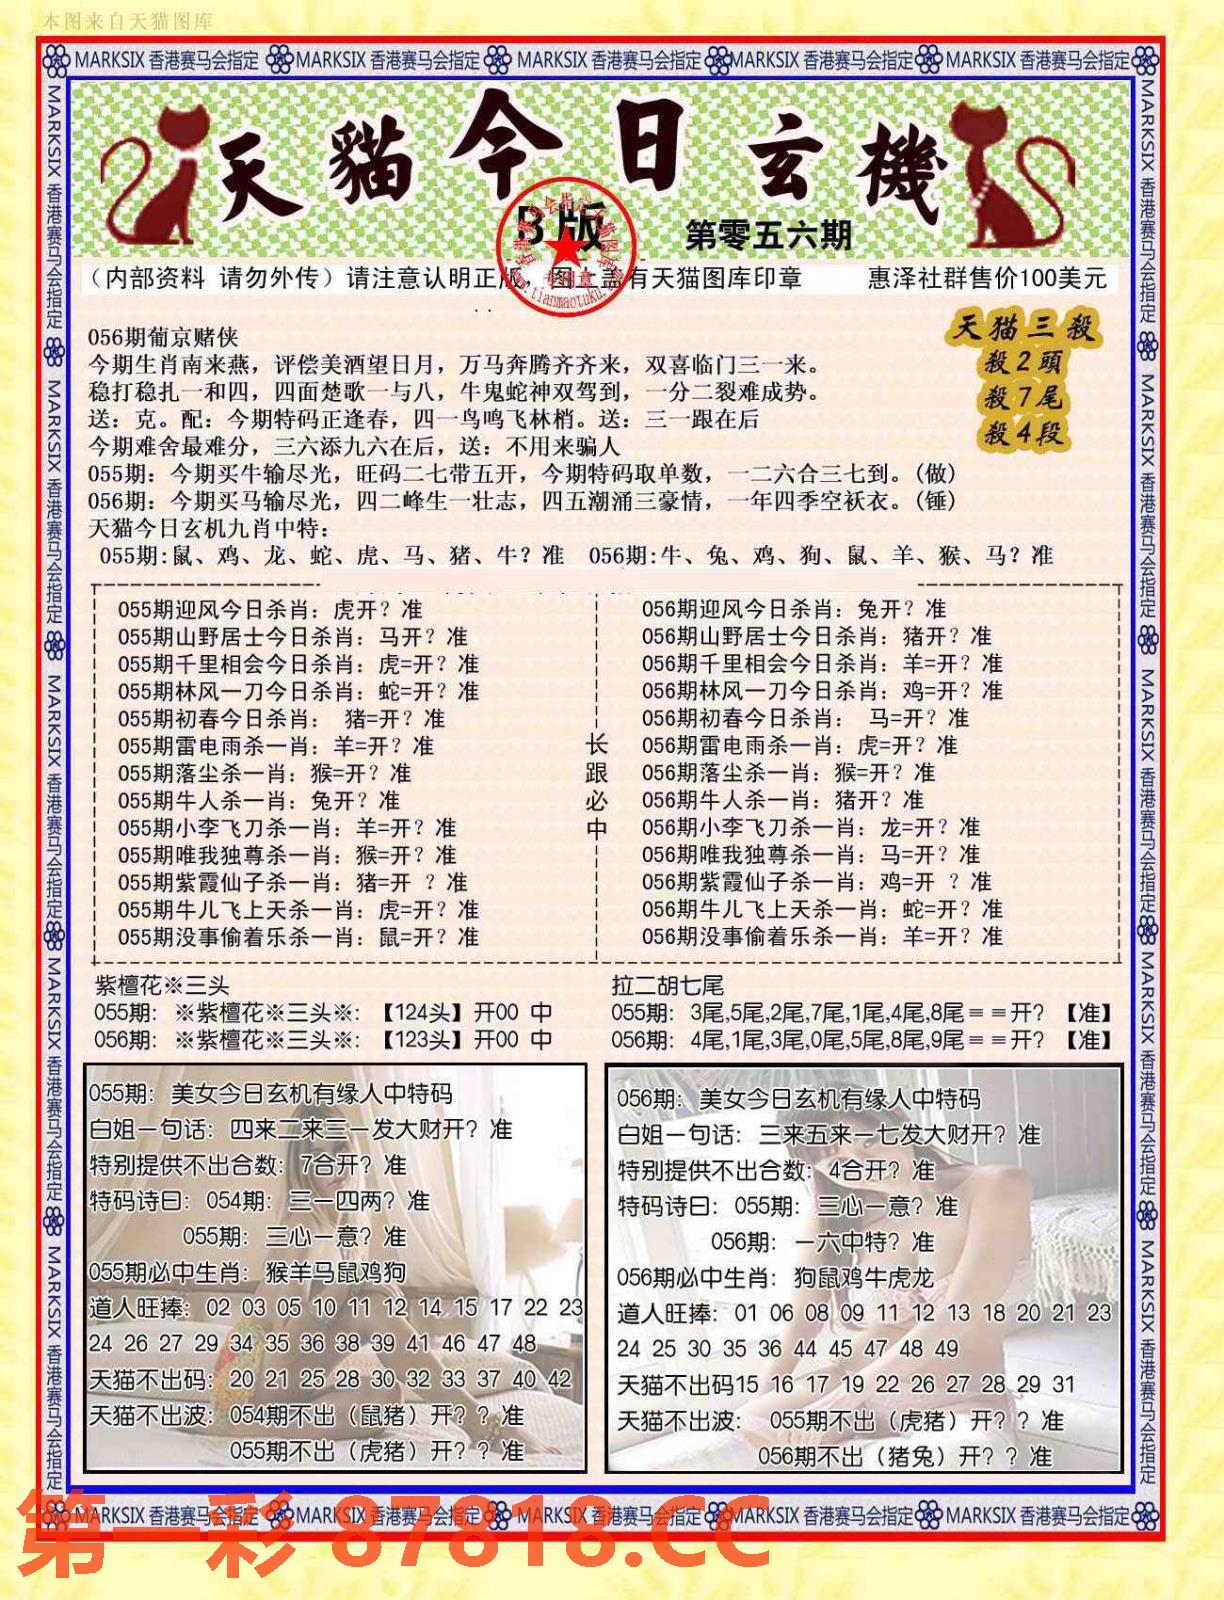 本图来自天猫图库
MARKSIX 香港赛马会指定 MARKSIX 香港赛马会指定 MARKSIX 香港赛马会指定 MARKSIX 香港赛马会指定 MARKSIX 香港赛马会指定
MARKSIX 香港赛马会指定 MARKSIX 香港赛马会指定 MARKSIX 香港赛马会指定 MARKSIX 香港赛马会指定 MARKSIX 香港赛马会指定
MARKSIX 香港赛马会指定 MARKSIX 香港赛马会指定 MARKSIX 香港赛马会指定 MARKSIX 香港赛马会指定 MARKSIX 香港赛马会指定
天貓今日玄機
B版
第零五六期
（内部资料 请勿外传）请注意认明正版 图上盖有天猫图库印章 惠泽社群售价100美元
专图章
www.tianmaotuku.
天猫三殺
殺2頭
殺7尾
殺4段
056期葡京赌侠
今期生肖南来燕，评偿美酒望日月，万马奔腾齐齐来，双喜临门三一来。
稳打稳扎一和四，四面楚歌一与八，牛鬼蛇神双驾到，一分二裂难成势。
送：克。配：今期特码正逢春，四一鸟鸣飞林梢。送：三一跟在后
今期难舍最难分，三六添九六在后，送：不用来骗人
055期：今期买牛输尽光，旺码二七带五开，今期特码取单数，一二六合三七到。(做)
056期：今期买马输尽光，四二峰生一壮志，四五潮涌三豪情，一年四季空袄衣。(锤)
天猫今日玄机九肖中特：
055期:鼠、鸡、龙、蛇、虎、马、猪、牛？准 056期:牛、兔、鸡、狗、鼠、羊、猴、马？准
055期迎风今日杀肖：虎开？准
055期山野居士今日杀肖：马开？准
055期千里相会今日杀肖：虎=开？准
055期林风一刀今日杀肖：蛇=开？准
055期初春今日杀肖： 猪=开？准
055期雷电雨杀一肖：羊=开？准
055期落尘杀一肖：猴=开？准
055期牛人杀一肖：兔开？准
055期小李飞刀杀一肖：羊=开？准
055期唯我独尊杀一肖：猴=开？准
055期紫霞仙子杀一肖：猪=开 ？准
055期牛儿飞上天杀一肖：虎=开？准
055期没事偷着乐杀一肖：鼠=开？准
长
跟
必
中
056期迎风今日杀肖：兔开？准
056期山野居士今日杀肖：猪开？准
056期千里相会今日杀肖：羊=开？准
056期林风一刀今日杀肖：鸡=开？准
056期初春今日杀肖： 马=开？准
056期雷电雨杀一肖：虎=开？准
056期落尘杀一肖：猴=开？准
056期牛人杀一肖：猪开？准
056期小李飞刀杀一肖：龙=开？准
056期唯我独尊杀一肖：马=开？准
056期紫霞仙子杀一肖：鸡=开 ？准
056期牛儿飞上天杀一肖：蛇=开？准
056期没事偷着乐杀一肖：羊=开？准
紫檀花※三头
055期：※紫檀花※三头※：【124头】开00 中
056期：※紫檀花※三头※：【123头】开00 中
拉二胡七尾
055期：3尾,5尾,2尾,7尾,1尾,4尾,8尾＝＝开？【准】
056期：4尾,1尾,3尾,0尾,5尾,8尾,9尾＝＝开？【准】
055期：美女今日玄机有缘人中特码
白姐一句话：四来二来三一发大财开？准
特别提供不出合数：7合开？准
特码诗曰：054期：三一四两？准
055期：三心一意？准
055期必中生肖：猴羊马鼠鸡狗
道人旺捧：02 03 05 10 11 12 14 15 17 22 23
24 26 27 29 34 35 36 38 39 41 46 47 48
天猫不出码：20 21 25 28 30 32 33 37 40 42
天猫不出波：054期不出（鼠猪）开？？准
055期不出（虎猪）开？？准
056期：美女今日玄机有缘人中特码
白姐一句话：三来五来一七发大财开？准
特别提供不出合数：4合开？准
特码诗曰：055期：三心一意？准
056期：一六中特？准
056期必中生肖：狗鼠鸡牛虎龙
道人旺捧：01 06 08 09 11 12 13 18 20 21 23
24 25 30 35 36 44 45 47 48 49
天猫不出码15 16 17 19 22 26 27 28 29 31
天猫不出波： 055期不出（虎猪）开？？准
056期不出（猪兔）开？？准
MARKSIX 香港赛马会指定 MARKSIX 香港赛马会指定 MARKSIX 香港赛马会指定 MARKSIX 香港赛马会指定 MARKSIX 香港赛马会指定
第一彩 87818.CC